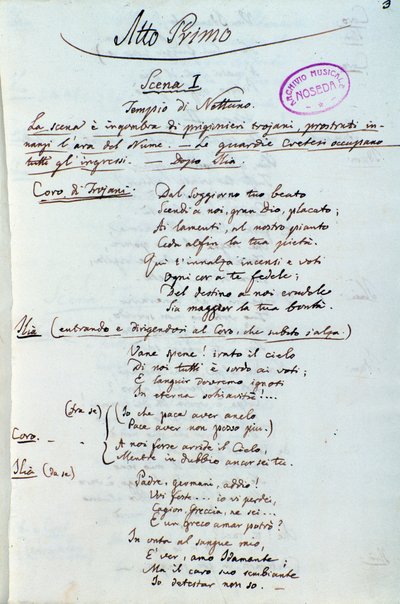 3
Atto Primo
Scena I
ARCHIVIO MUSICALE
NOSEDA
Tempio di Nettuno.
La scena è ingombra di prigionieri trojani, prostrati in-
nanzi l'ara del Nume. — Le guardie Cretesi occupano
tutti gl'ingressi. — Dopo Ilia.
Coro di Trojani.
Dal Soggiorno tuo beato
Scendi a noi, gran Dio, placato;
Ai lamenti, al nostro pianto
Ceda alfin la tua pietà.
Qui t'innalza incensi e voti
Ogni cor a te fedele;
Del destino a noi crudele
Sia maggior la tua bontà.
Ilia (entrando e dirigendosi al Coro, che subito s'alza.)
Vane spene! irato il cielo
Di noi tutti è sordo ai voti;
E languir dovremo ignoti
In eterna schiavitù!...
(fra se) (Io che pace aver anelo
Pace aver non posso più.)
Coro. A noi forse arride il Cielo,
Mentre in dubbio ancor sei tu.
Ilia (da se)
Padre, germani, addio!
Voi foste... io vi perdei,
Cagion, Grecia, ne sei...
E un Greco amar potrò?
In onta al sangue mio,
È ver, amo Idamante;
Ma il caro suo sembiante
Io detestar non so. —